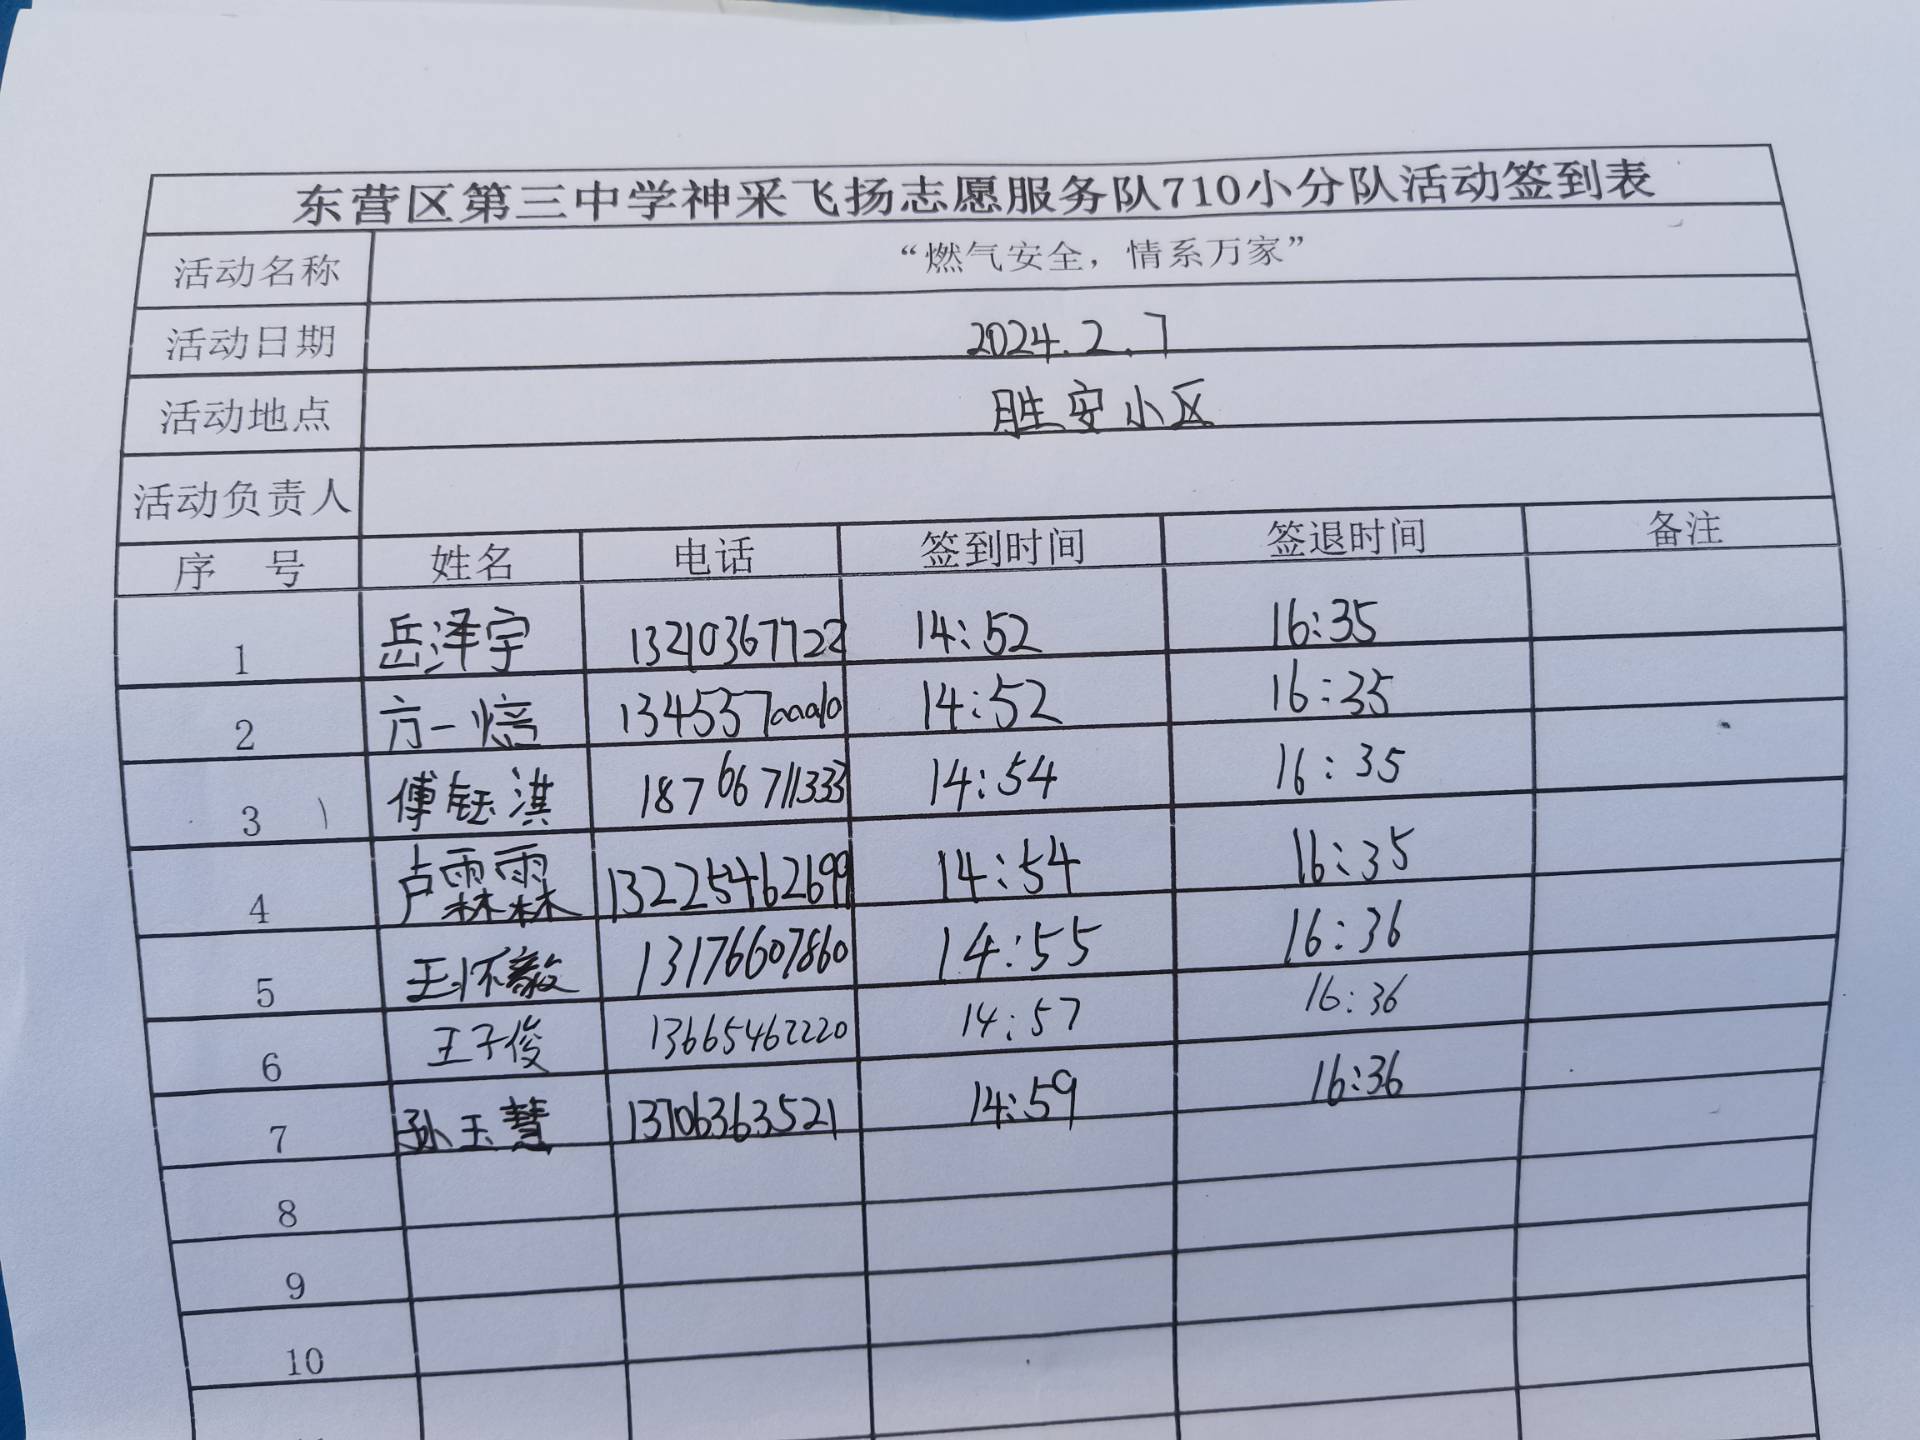 东营区第三中学神采飞扬志愿服务队710小分队活动签到表
活动名称 “燃气安全，情系万家”
活动日期 2024.2.7
活动地点 胜安小区
活动负责人
序 号 姓名 电话 签到时间 签退时间 备注
1 岳泽宇 13210367722 14:52 16:35
2 方一焙 14:52 16:35
3 傅钰淇 18766711333 14:54 16:35
4 卢霖霖 13225462699 14:54 16:35
5 王怀毅 13176607860 14:55 16:36
6 王子俊 13665462220 14:57 16:36
7 孙玉慧 13706363521 14:59 16:36
8
9
10